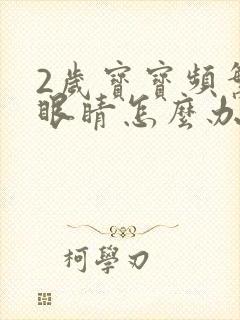 2歲寶寶頻
眼睛怎麼办
柯學刃